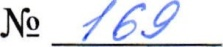 № 169